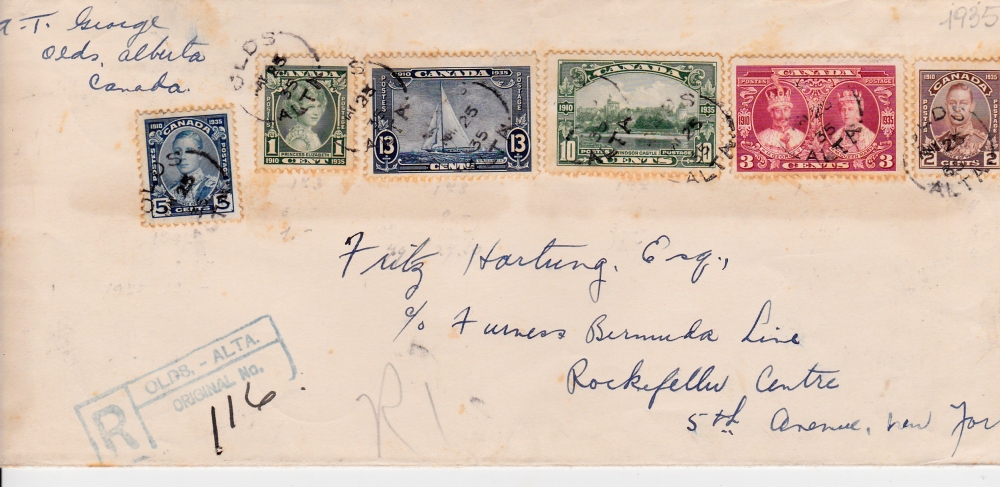 A. T. George
Olds, Alberta
Canada.
1935
1910 CANADA 1935
POSTES POSTAGE
5 CENTS 5
1910 CANADA 1935
POSTES POSTAGE
1 PRINCESS ELIZABETH 1
1910 CENT 1935
1910 CANADA 1935
POSTES POSTAGE
13 CENTS 13
CANADA
POSTES POSTAGE
1910 1935
10 WINDSOR CASTLE 10
CENTS
CANADA
POSTES POSTAGE
1910 1935
3 CENTS 3
1910 CANADA 1935
POSTES POSTAGE
2 CENTS 2
OLDS
ALTA
25
35
Fritz Hartung, Esq.,
c/o Furness Bermuda Line
Rockefeller Centre
5th Avenue, New Yor
R
OLDS. - ALTA.
ORIGINAL No.
116.
R1